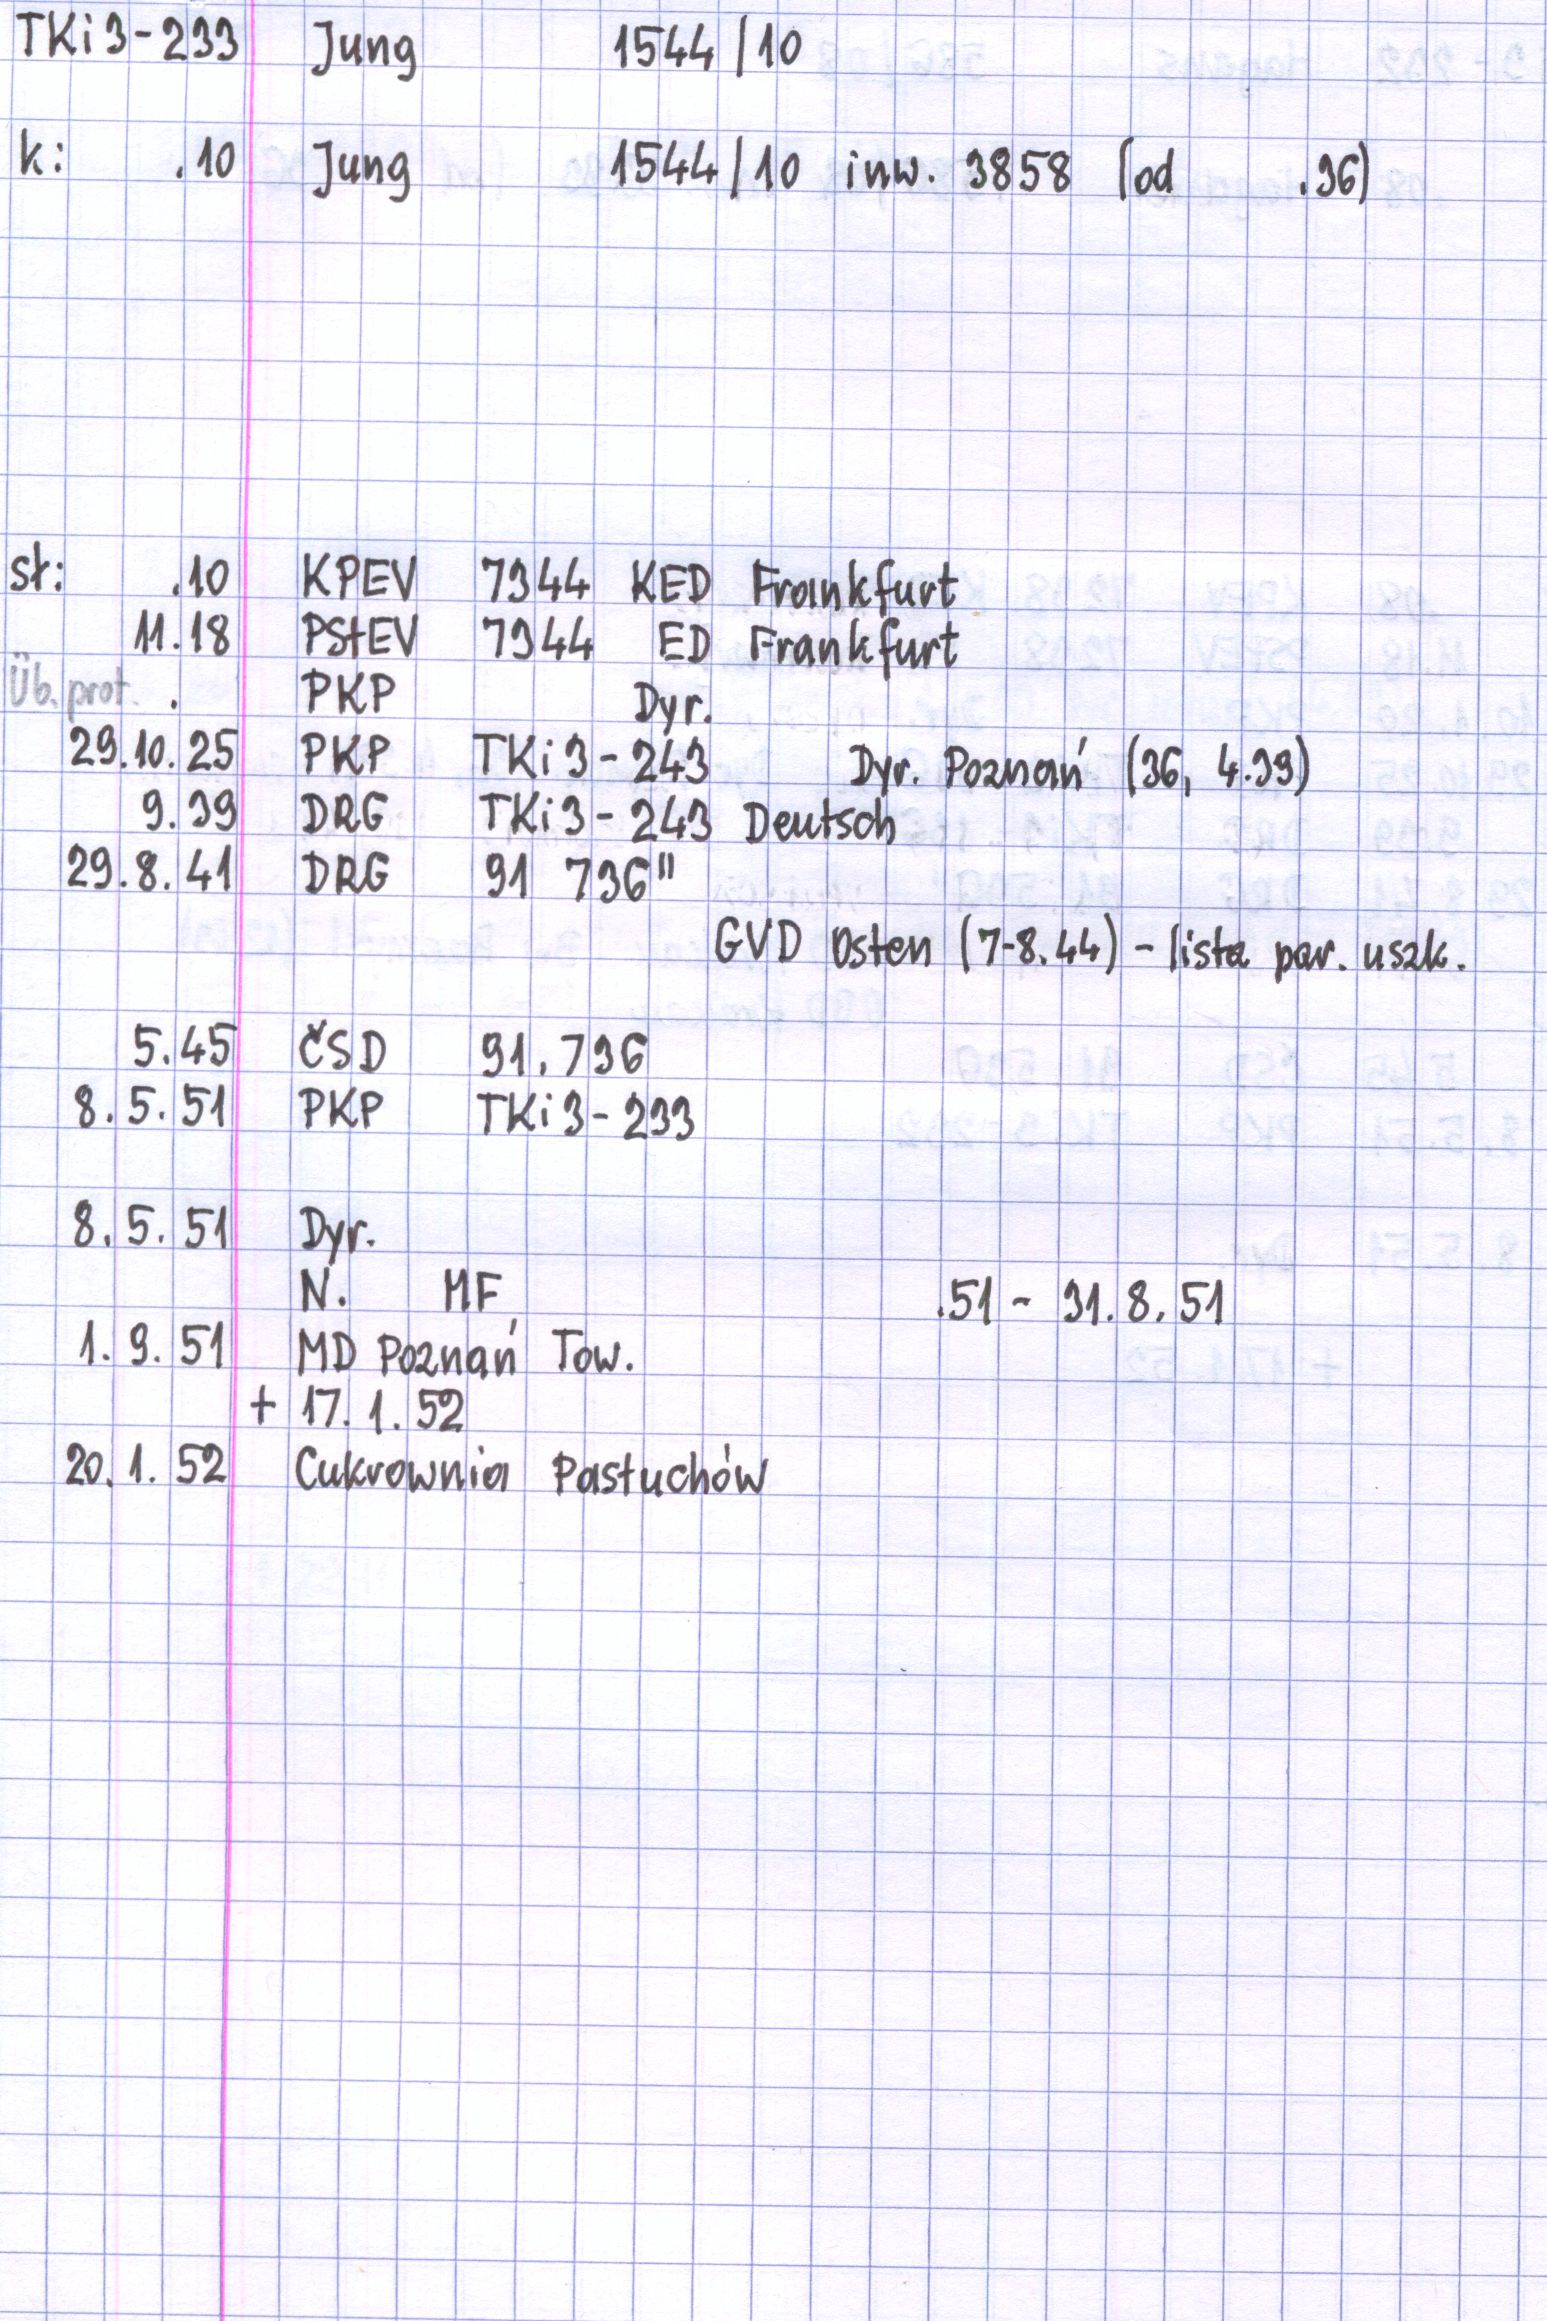 TKi3-233 Jung 1544/10
k: .10 Jung 1544/10 inw. 3858 (od .36)
sł: .10 KPEV 7344 KED Frankfurt
11.18 PStEV 7344 ED Frankfurt
Üb. prot. . PKP Dyr.
29.10.25 PKP TKi3-243 Dyr. Poznań (36, 4.39)
9.39 DRG TKi3-243 Deutsch
29.8.41 DRG 91 736"
GVD Osten (7-8.44) - lista par. uszk.
5.45 ČSD 91.736
8.5.51 PKP TKi3-233
8.5.51 Dyr.
N. MF .51 - 31.8.51
1.9.51 MD Poznań Tow.
+ 17.1.52
20.1.52 Cukrownia Pastuchów